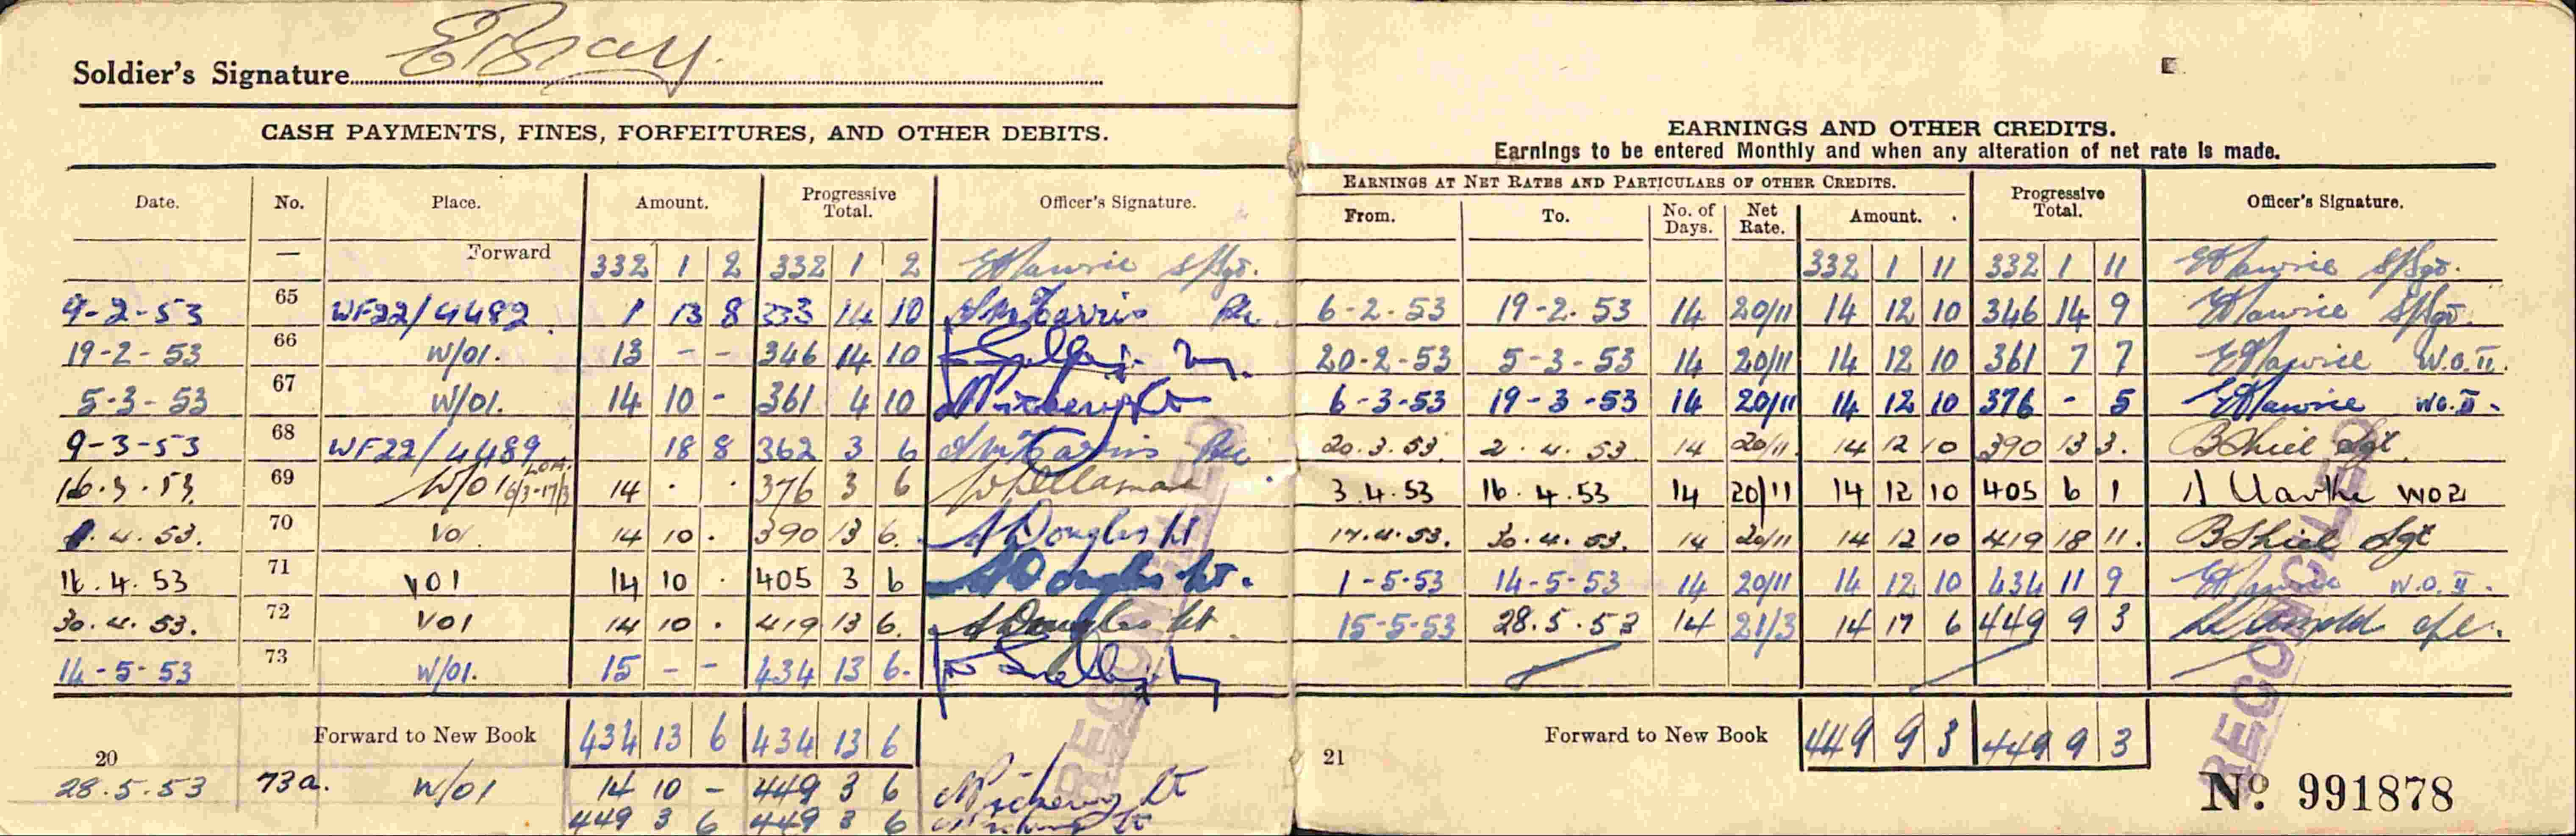 Soldier's Signature E Bray.
CASH PAYMENTS, FINES, FORFEITURES, AND OTHER DEBITS.
Date. No. Place. Amount. Progressive Total. Officer's Signature.
— Forward 332 1 2 332 1 2 S/Sgt.
9-2-53 65 WF22/4482. 1 13 8 333 14 10 Harris
19-2-53 66 W/01. 13 - - 346 14 10
5-3-53 67 W/01. 14 10 - 361 4 10
9-3-53 68 WF22/4489 18 8 362 3 6 Harris
16.3.53. 69 W/01 6/3-17/3 14 . . 376 3 6
.4.53. 70 V01 14 10 . 390 13 6. Douglas Lt
16.4.53 71 V01 14 10 . 405 3 6 Douglas Lt.
30.4.53. 72 V01 14 10 . 419 13 6. Douglas Lt.
14-5-53 73 W/01. 15 - - 434 13 6.
Forward to New Book 434 13 6 434 13 6
20
28.5.53 73a. W/01 14 10 - 449 3 6 Pickering Lt
449 3 6 449 3 6 Pickering Lt
RECONCILED
EARNINGS AND OTHER CREDITS.
Earnings to be entered Monthly and when any alteration of net rate is made.
EARNINGS AT NET RATES AND PARTICULARS OF OTHER CREDITS. Progressive Total. Officer's Signature.
From. To. No. of Days. Net Rate. Amount.
332 1 11 332 1 11 S/Sgt.
6-2-53 19-2-53 14 20/11 14 12 10 346 14 9 S/Sgt.
20-2-53 5-3-53 14 20/11 14 12 10 361 7 7 W.O.II.
6-3-53 19-3-53 14 20/11 14 12 10 376 - 5 W.O.II.
20.3.53. 2.4.53 14 20/11. 14 12 10 390 13 3. B Shiel Sgt.
3.4.53 16.4.53 14 20/11 14 12 10 405 6 1 WO2
17.4.53. 30.4.53. 14 20/11 14 12 10 419 18 11. B Shiel Sgt
1-5-53 14-5-53 14 20/11 14 12 10 434 11 9 W.O.II.
15-5-53 28.5.53 14 21/3 14 17 6 449 9 3 Cpl.
Forward to New Book 449 9 3 449 9 3
21
RECONCILED
No. 991878